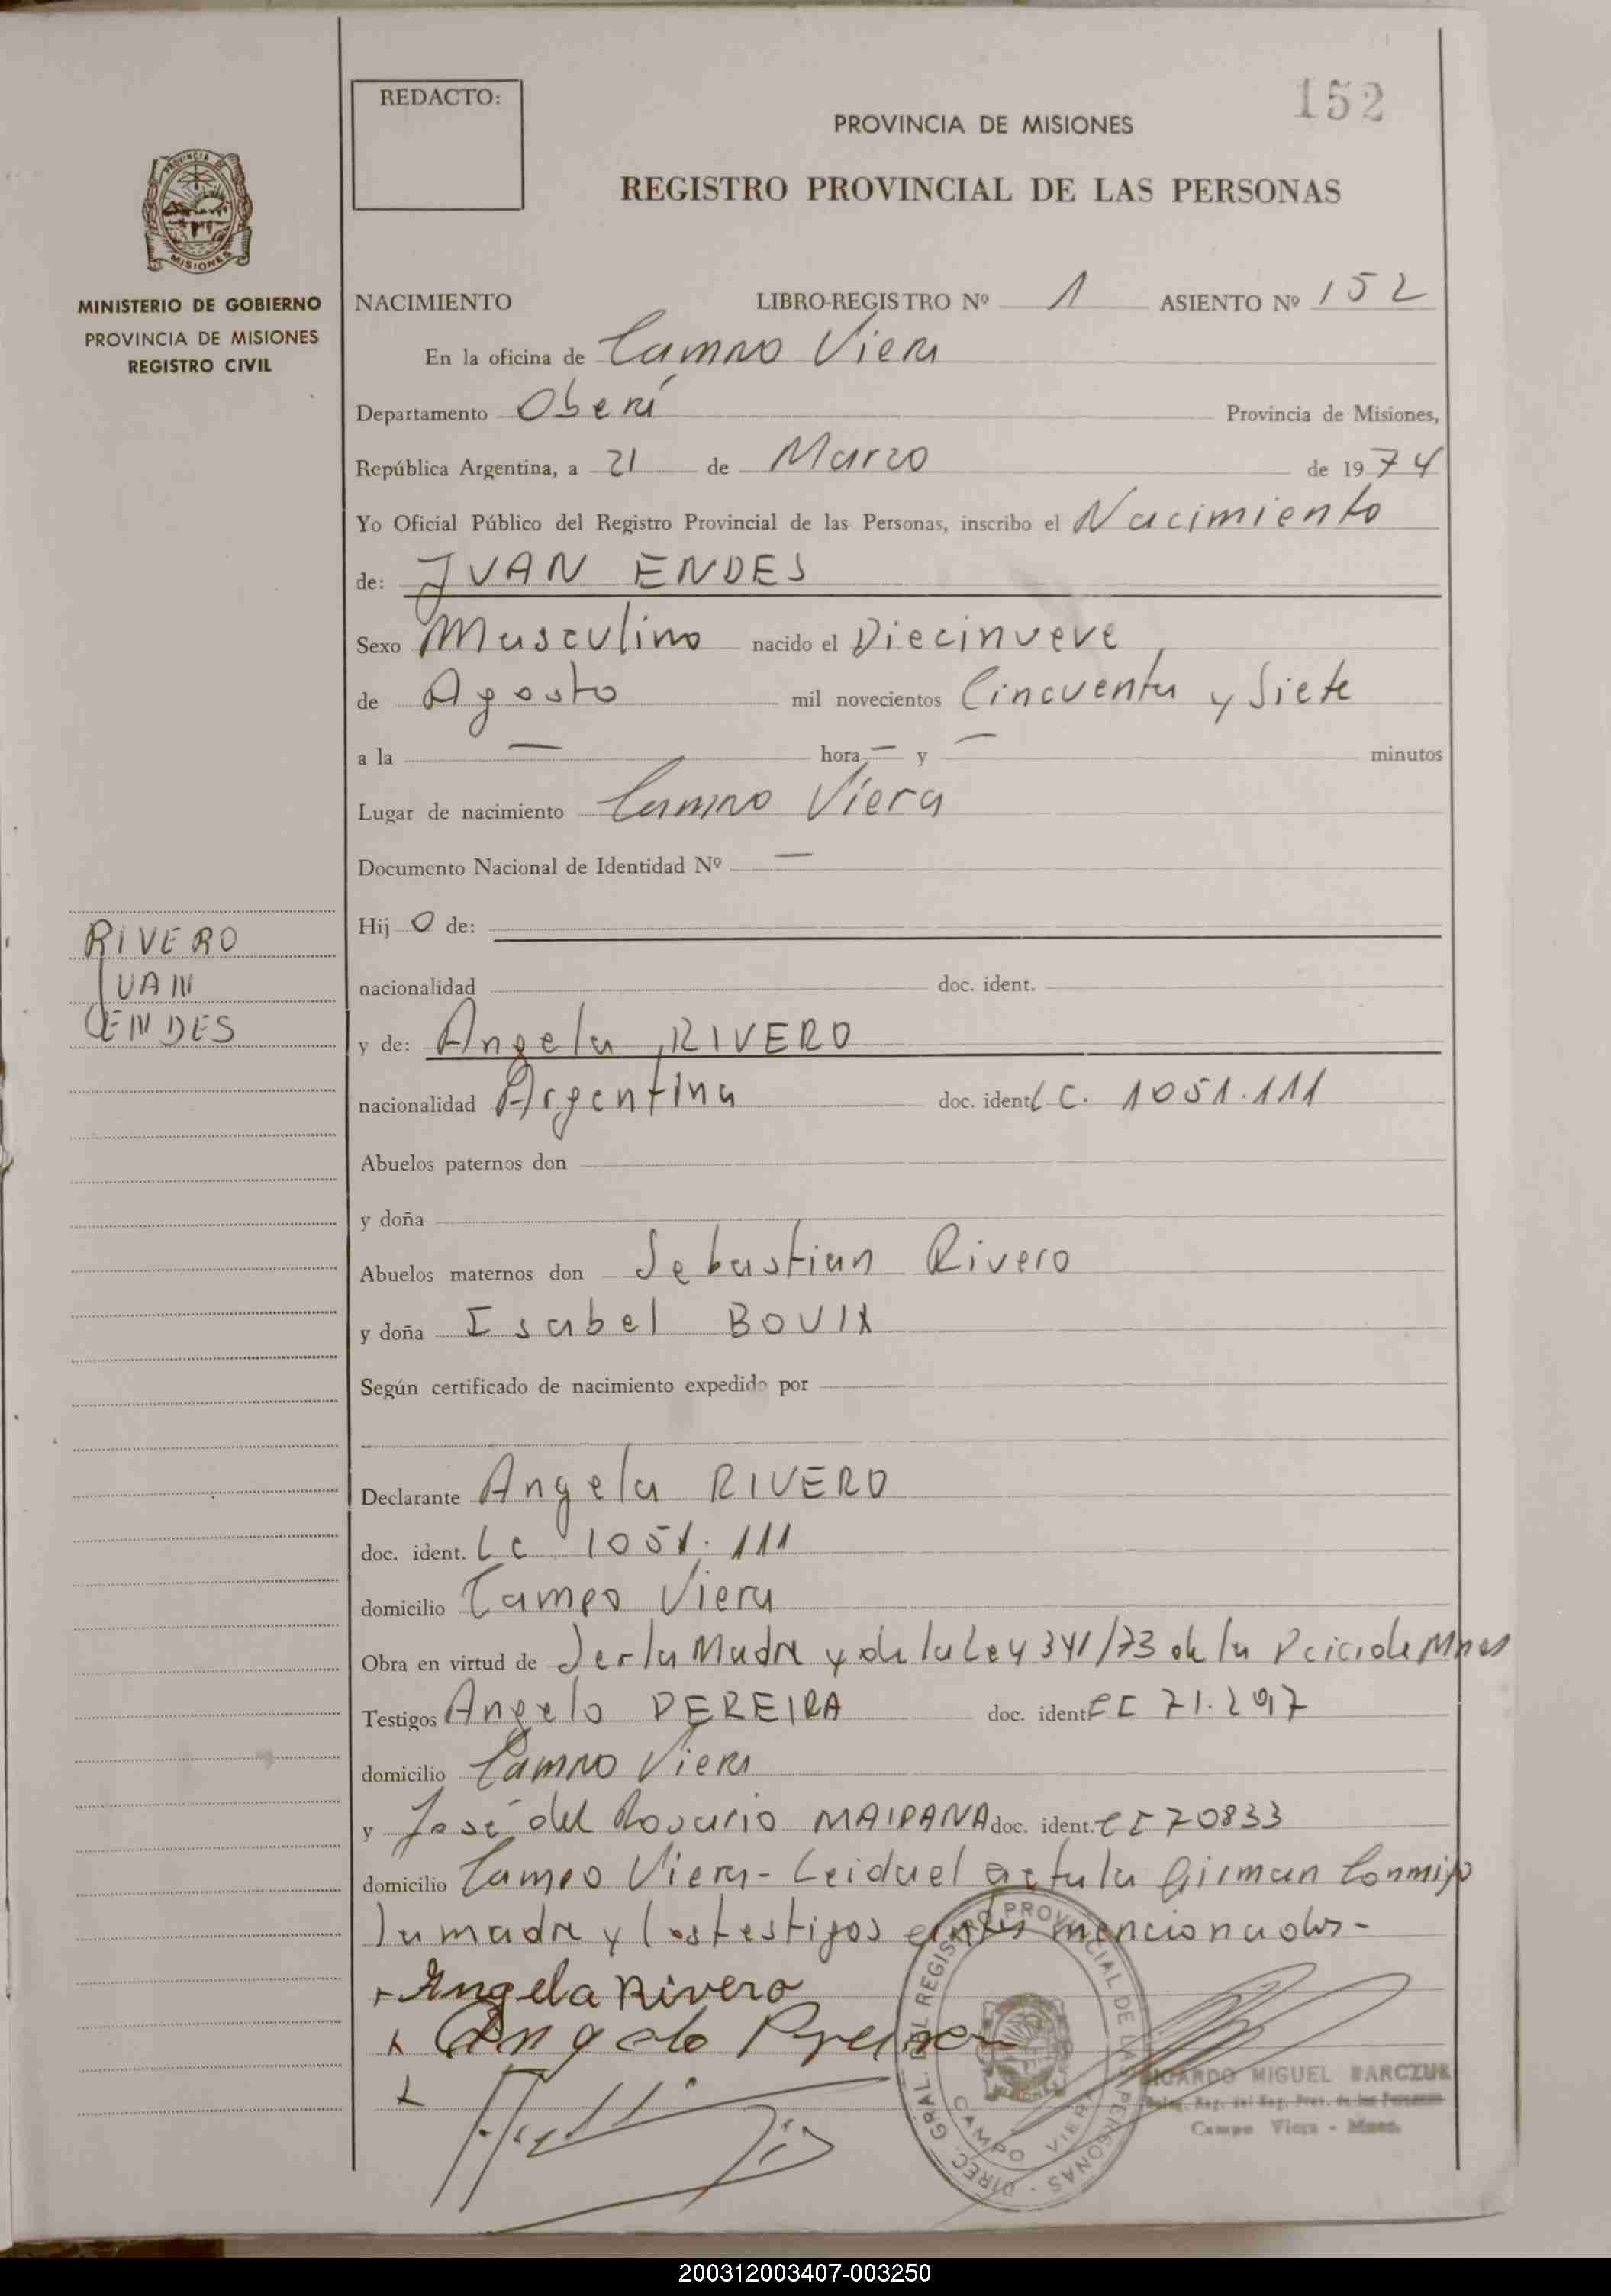 152
REDACTO:
PROVINCIA DE MISIONES
REGISTRO PROVINCIAL DE LAS PERSONAS
PROVINCIA DE
MISIONES
MINISTERIO DE GOBIERNO
PROVINCIA DE MISIONES
REGISTRO CIVIL
NACIMIENTO LIBRO-REGISTRO Nº 1 ASIENTO Nº 152
En la oficina de Campo Viera
Departamento Oberá Provincia de Misiones,
República Argentina, a 21 de Marzo de 1974
Yo Oficial Público del Registro Provincial de las Personas, inscribo el Nacimiento
de: JUAN ENDES
Sexo Masculino nacido el Diecinueve
de Agosto mil novecientos Cincuenta y Siete
a la — hora — y — minutos
Lugar de nacimiento Campo Viera
Documento Nacional de Identidad Nº —
Hijo de:
RIVERO
JUAN
ENDES
nacionalidad doc. ident.
y de: Angela RIVERO
nacionalidad Argentina doc. ident LC. 1051.111
Abuelos paternos don
y doña
Abuelos maternos don Sebastian Rivero
y doña Isabel BOVIX
Según certificado de nacimiento expedido por
Declarante Angela RIVERO
doc. ident. LC 1051.111
domicilio Campo Viera
Obra en virtud de Ser la Madre y de la Ley 341/73 de la Pcia de Mnes
Testigos Angelo PEREIRA doc. ident CI 71.297
domicilio Campo Viera
y José del Rosario MAIDANA doc. ident. CI 70833
domicilio Campo Viera - Leida el acta la firman Conmigo
la madre y los testigos antes mencionados -
Angela Rivero
Angelo
DIREC. GRAL. DEL REGISTRO PROVINCIAL DE LAS PERSONAS
CAMPO VIERA
RICARDO MIGUEL BARCZUK
Campo Viera - Mnes.
200312003407-003250